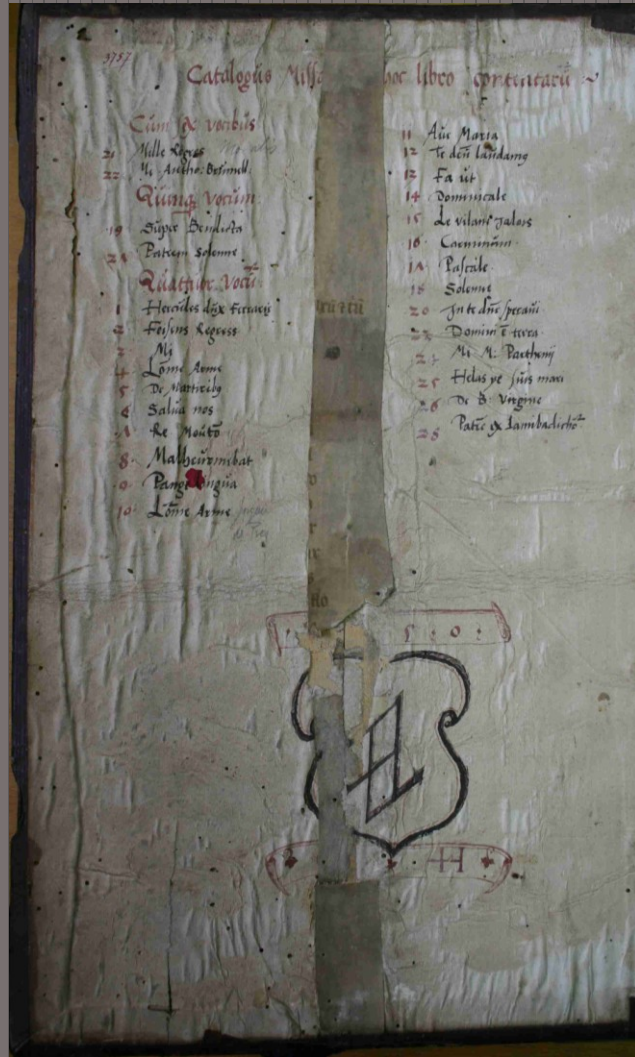 3757
Catalogus Miss hoc libro contentarū
Cum sex vocibus
21 Mille Regres
22
Quinq vocum
19 Super Benedicta
Patrem Solenne
Quattuor vocū
1 Hercules dux Ferrarie
2 Forsens Regress
3 Mj
4 Lōme Arme
5 De Martiribq
6 Salua nos
Re Moutō
8 Malheurmsbat
9 Pange lingua
10 Lōme Arme
11 Aue Maria
12 Te deū laudamq
13 Fa ut
14 Dominicale
15 Le vilant Jalois
16 Carminum
Pascale
18 Solenne
20 In te dn̄e speraui
Domini ē terra
Mi M: Parthenij
25 Helas ye suis mari
26 De B. Virgine
5 0
H